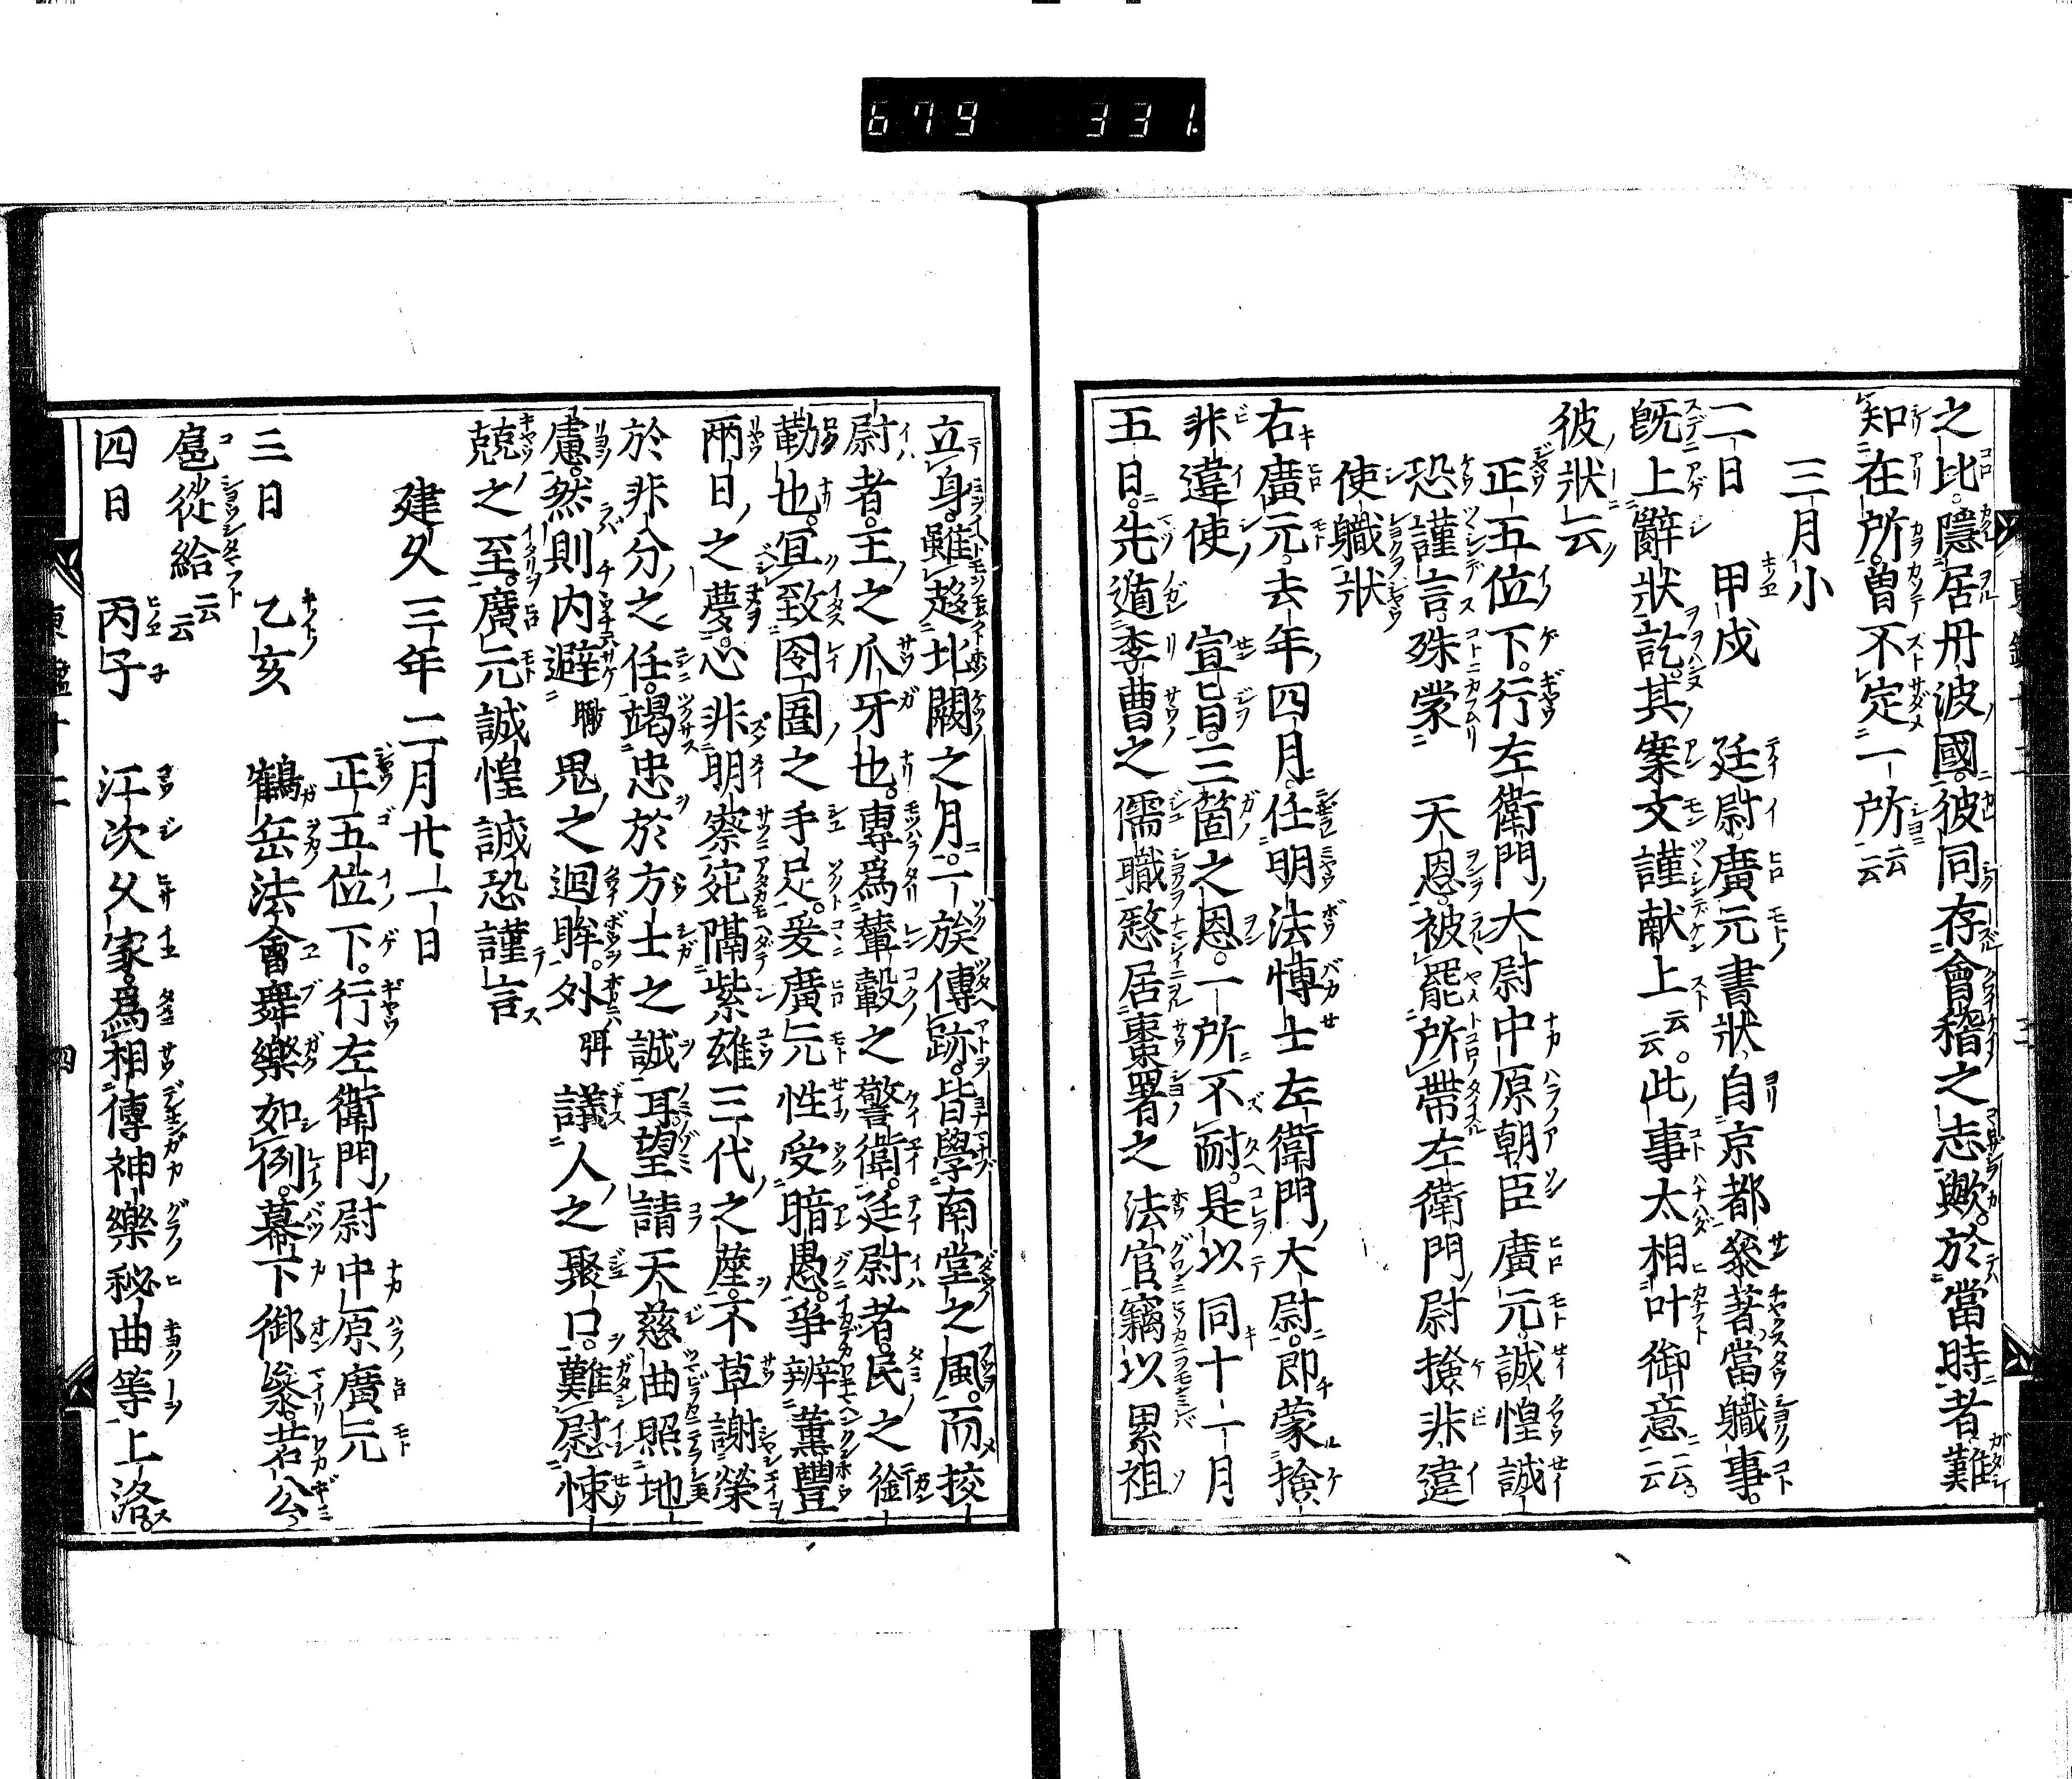 679 331.
之比。隱居丹波國。彼同存會稽之志歟。於當時者難
知在所。曽不定一所云云
三月小
二日 甲戌 廷尉廣元書狀自京都參著。當職事。
既上辭狀訖。其案文謹献上云云。此事太相叶御意云云。
彼狀云
正五位下。行左衛門大尉中原朝臣廣元。誠惶誠
恐謹言。殊蒙 天恩。被罷所帶左衛門尉撿非違
使職狀
右廣元。去年四月。任明法博士左衛門大尉。即蒙撿
非違使 宣旨。三箇之恩。一所不耐。是以同十一月
五日。先遁李曹之儒職。憖居棗署之法官。竊以累祖
立身。雖趍北闕之月。一族傳跡。皆學南堂之風。而挍
尉者。王之爪牙也。專為輦轂之警衛。廷尉者。民之銜
勒也。宜致囹圄之手足。爰廣元性受暗愚。爭辨薫豐
兩日之夢。心非明察。宛隔紫雄三代之塵。不草謝榮
於非分之任。竭忠於方士之誠耳。望請天慈曲照地
慮。然則内避 瞰鬼之迴眸。外 弭 議人之聚口。難慰悚
兢之至。廣元誠惶誠恐謹言
建久三年二月廿一日
正五位下。行左衛門尉中原廣元
三日 乙亥 鶴岳法會舞樂如例。幕下御參。若公
扈從給云云
四日 丙子 江次久家。為相傳神樂秘曲等上洛。
四